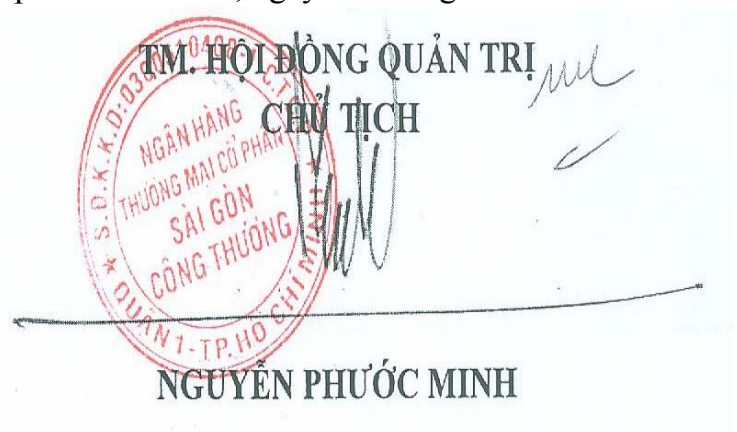 TM. HỘI ĐỒNG QUẢN TRỊ
CHỦ TỊCH
NGÂN HÀNG
THƯƠNG MẠI CỔ PHẦN
SÀI GÒN
CÔNG THƯƠNG
S.Đ.K.K.D:
QUẬN 1-TP.HỒ CHÍ MINH
NGUYỄN PHƯỚC MINH